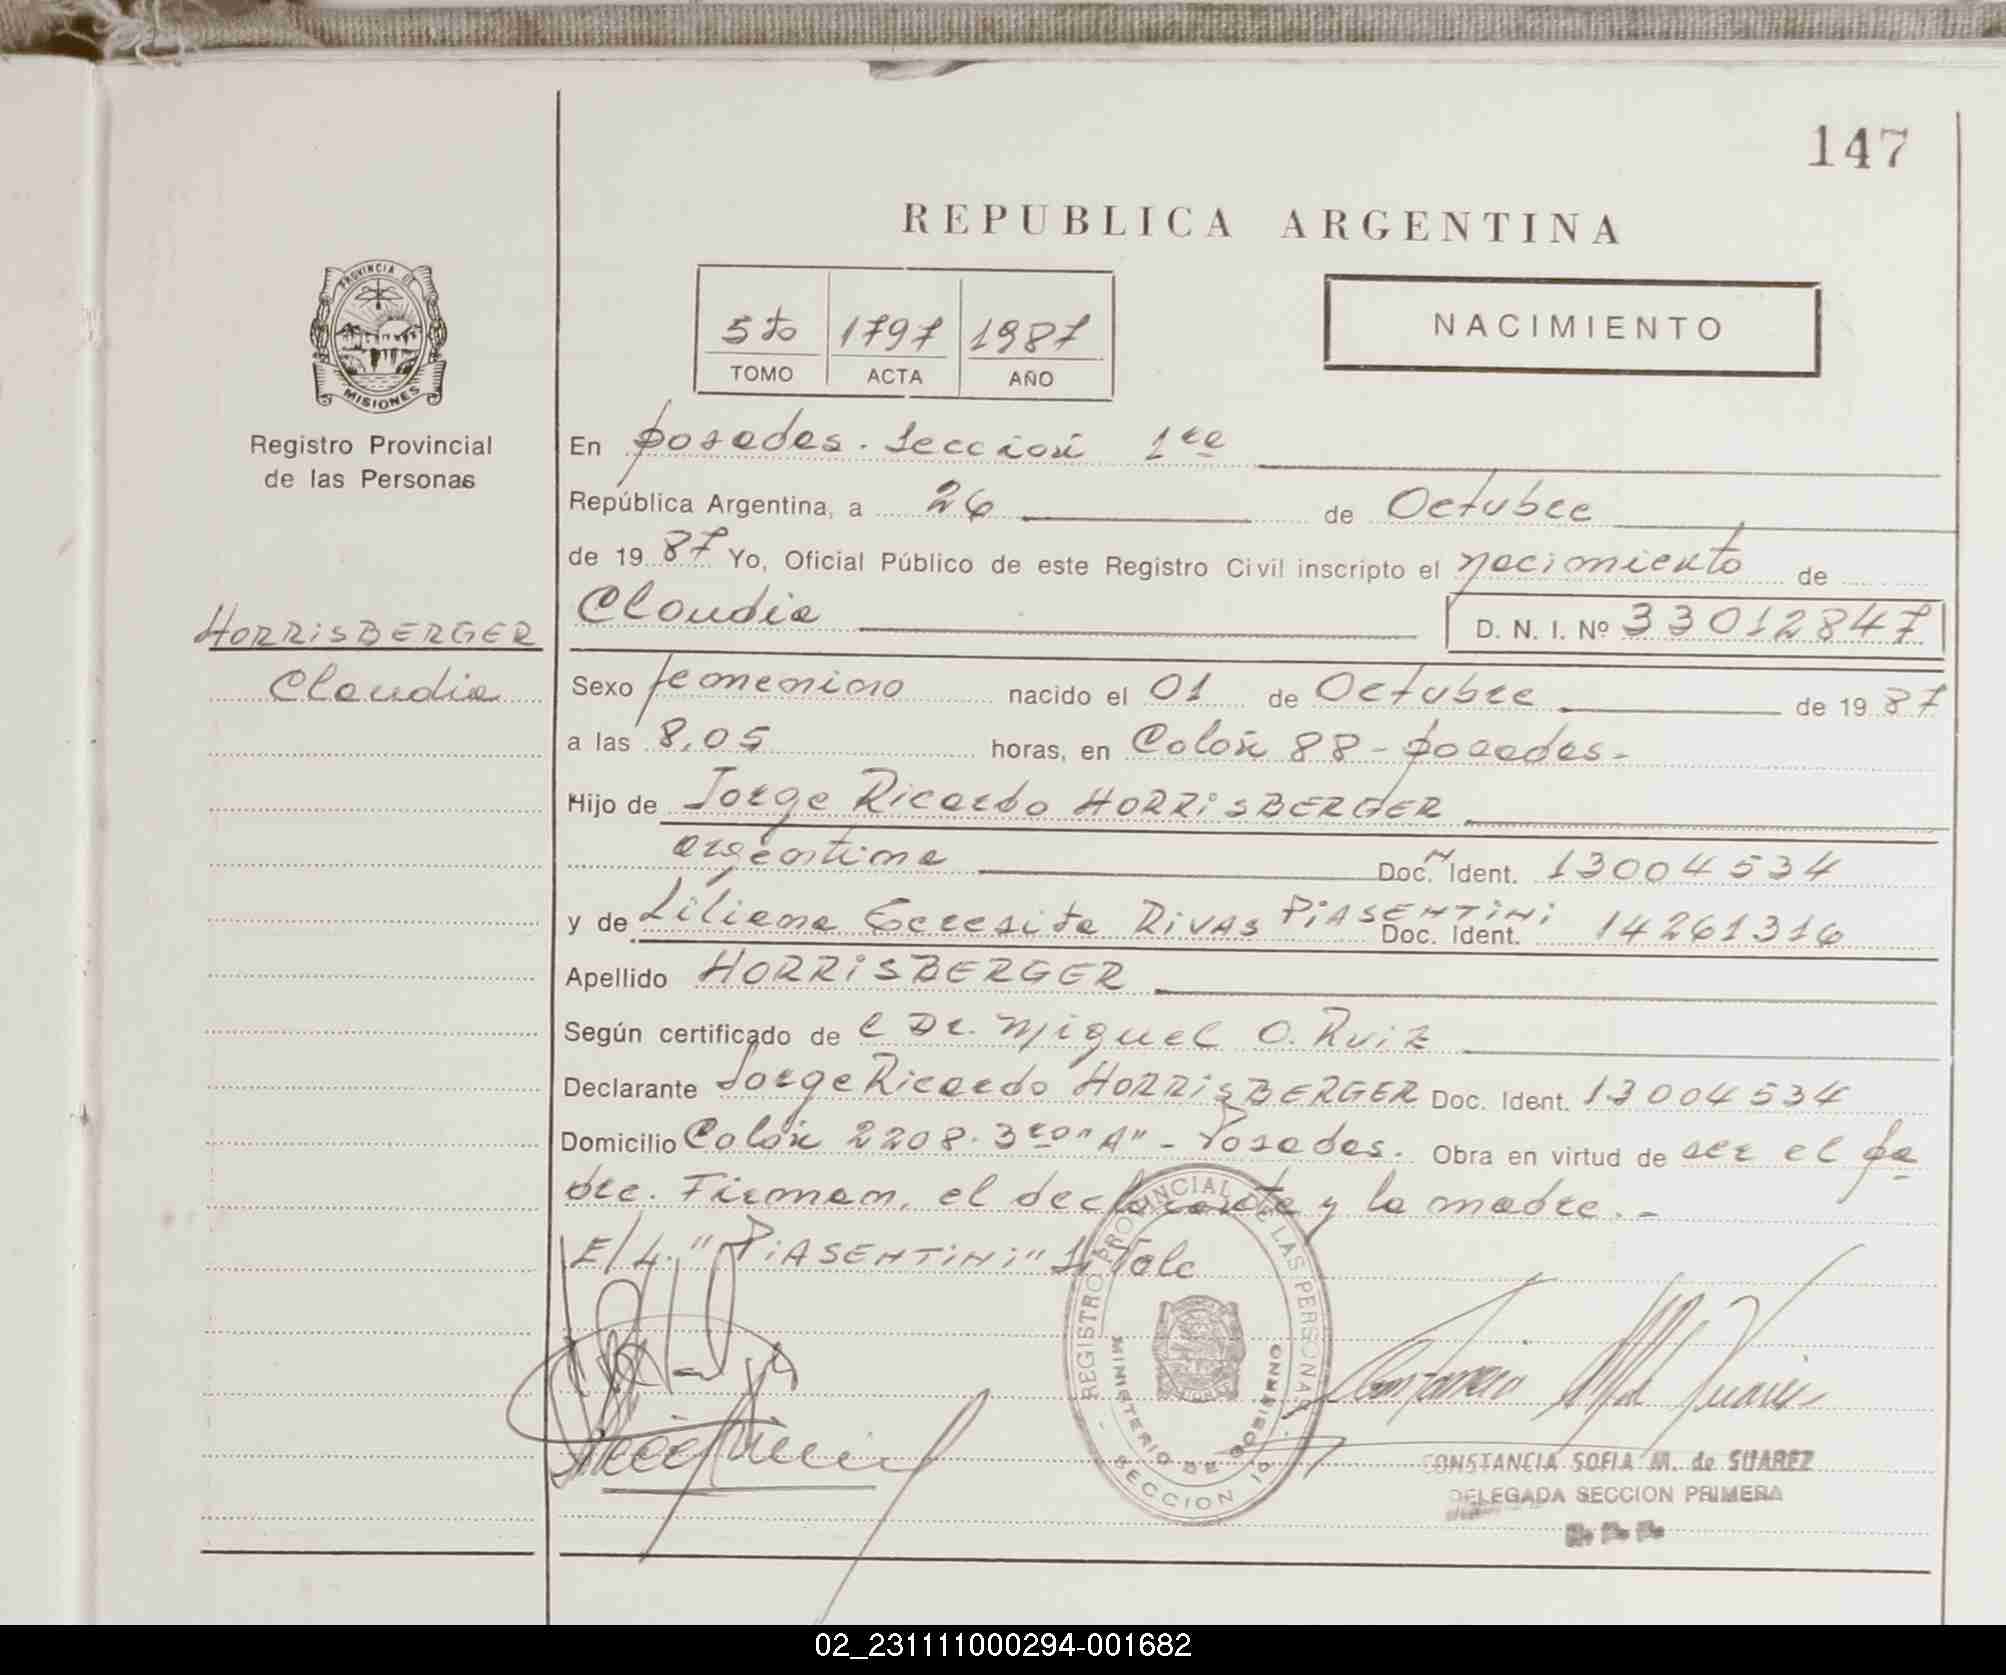 147
REPUBLICA ARGENTINA
5to 1797 1987
TOMO ACTA AÑO
NACIMIENTO
PROVINCIA DE
MISIONES
Registro Provincial
de las Personas
HORRISBERGER
Claudia
En Posadas. Sección 1ra
República Argentina, a 26 de Octubre
de 1987 Yo, Oficial Público de este Registro Civil inscripto el nacimiento de
Claudia D. N. I. Nº 33012847
Sexo femenino nacido el 01 de Octubre de 1987
a las 8,05 horas, en Colón 88 - Posadas.
Hijo de Jorge Ricardo HORRISBERGER
argentina Doc. Ident. 13004534
y de Liliana Teresita RIVAS PIASENTINI Doc. Ident. 14261316
Apellido HORRISBERGER
Según certificado de el Dr. Miguel O. Ruiz
Declarante Jorge Ricardo HORRISBERGER Doc. Ident. 13004534
Domicilio Colón 2208. 3ro "A" - Posadas. Obra en virtud de ser el pa
dre. Firman, el declarante y la madre. -
E/L. "PIASENTINI" Vale
REGISTRO PROVINCIAL DE LAS PERSONAS
MINISTERIO DE GOBIERNO
SECCION 1
CONSTANCIA SOFIA M. de SUAREZ
DELEGADA SECCION PRIMERA
02_231111000294-001682